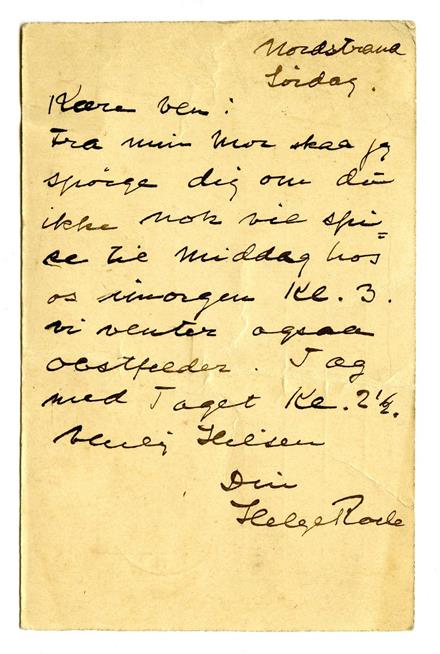 Nordstrand
Lørdag.
Kære Ven!
Fra min Mor skal jeg
spørge dig om du
ikke nok vil spi=
se til Middag hos
os imorgen Kl. 3.
vi venter ogsaa
Obstfelder. Tag
med Toget Kl. 2½.
Venlig Hilsen
Din
Helge Rode